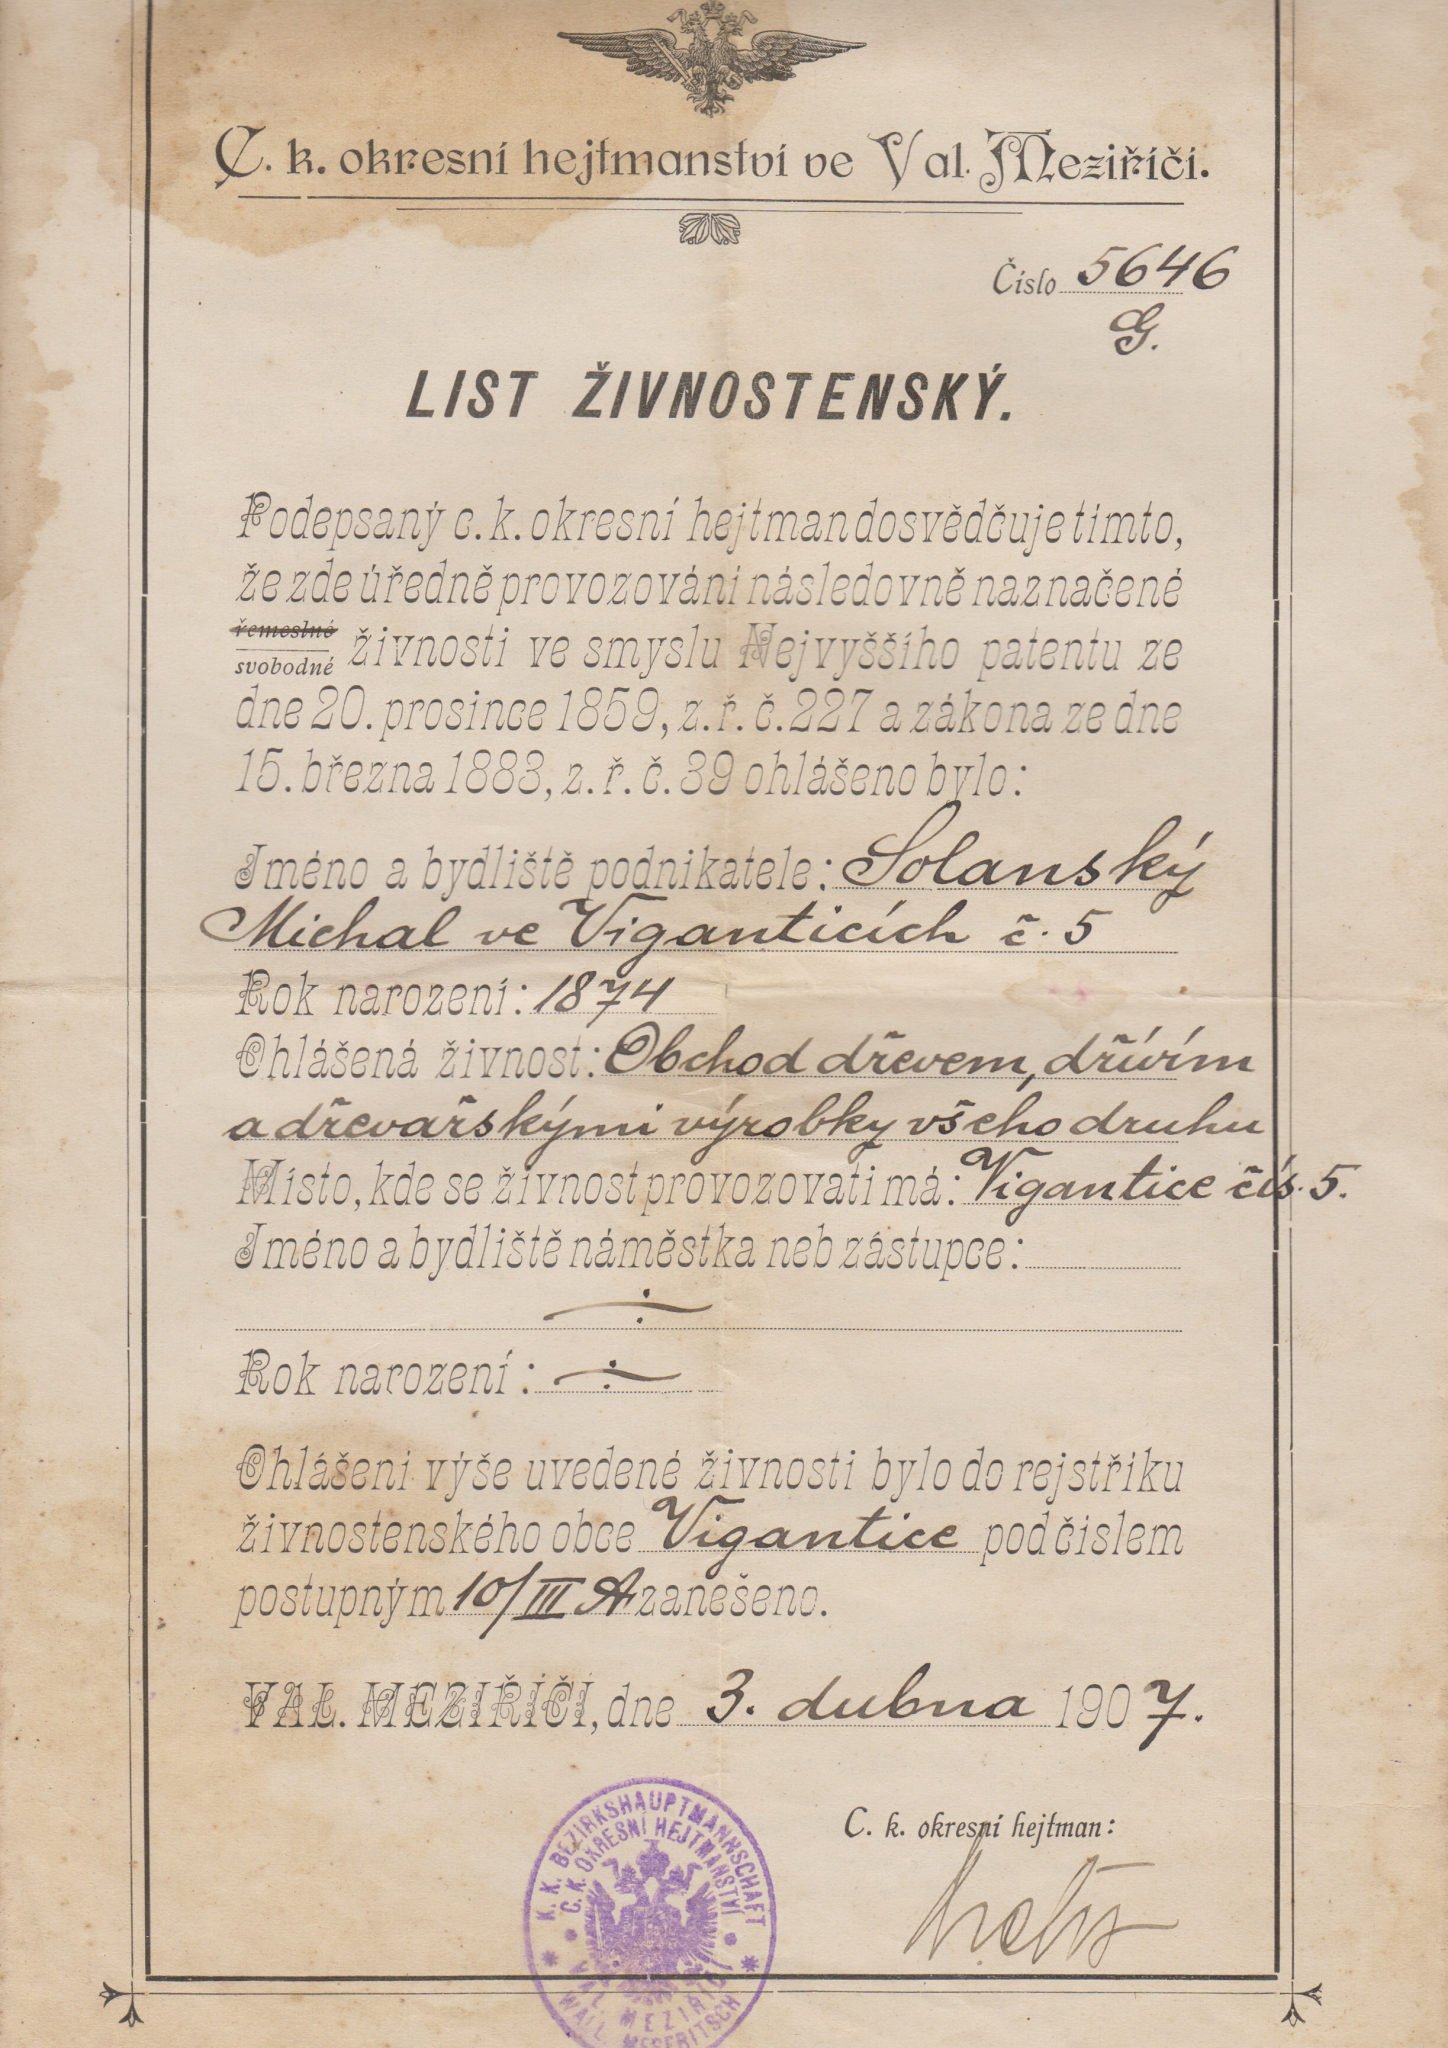 C. k. okresní hejtmanství ve Val. Meziříčí.
Číslo 5646
G.
LIST ŽIVNOSTENSKÝ.
Podepsaný c. k. okresní hejtman dosvědčuje tímto,
že zde úředně provozování následovně naznačené
řemeslné
svobodné živnosti ve smyslu Nejvyššího patentu ze
dne 20. prosince 1859, z. ř. č. 227 a zákona ze dne
15. března 1883, z. ř. č. 39 ohlášeno bylo:
Jméno a bydliště podnikatele: Solanský
Michal ve Viganticích č. 5
Rok narození: 1874
Ohlášená živnost: Obchod dřevem, dřívím
a dřevařskými výrobky všeho druhu
Místo, kde se živnost provozovati má: Vigantice čís. 5.
Jméno a bydliště náměstka neb zástupce:
Rok narození:
Ohlášení výše uvedené živnosti bylo do rejstříku
živnostenského obce Vigantice pod číslem
postupným 10/III A zanešeno.
VAL. MEZIŘÍČÍ, dne 3. dubna 1907.
C. k. okresní hejtman:
K. K. BEZIRKSHAUPTMANNSCHAFT
C. K. OKRESNÍ HEJTMANSTVÍ
VAL. MEZIŘÍČÍ
WALL. MESERITSCH